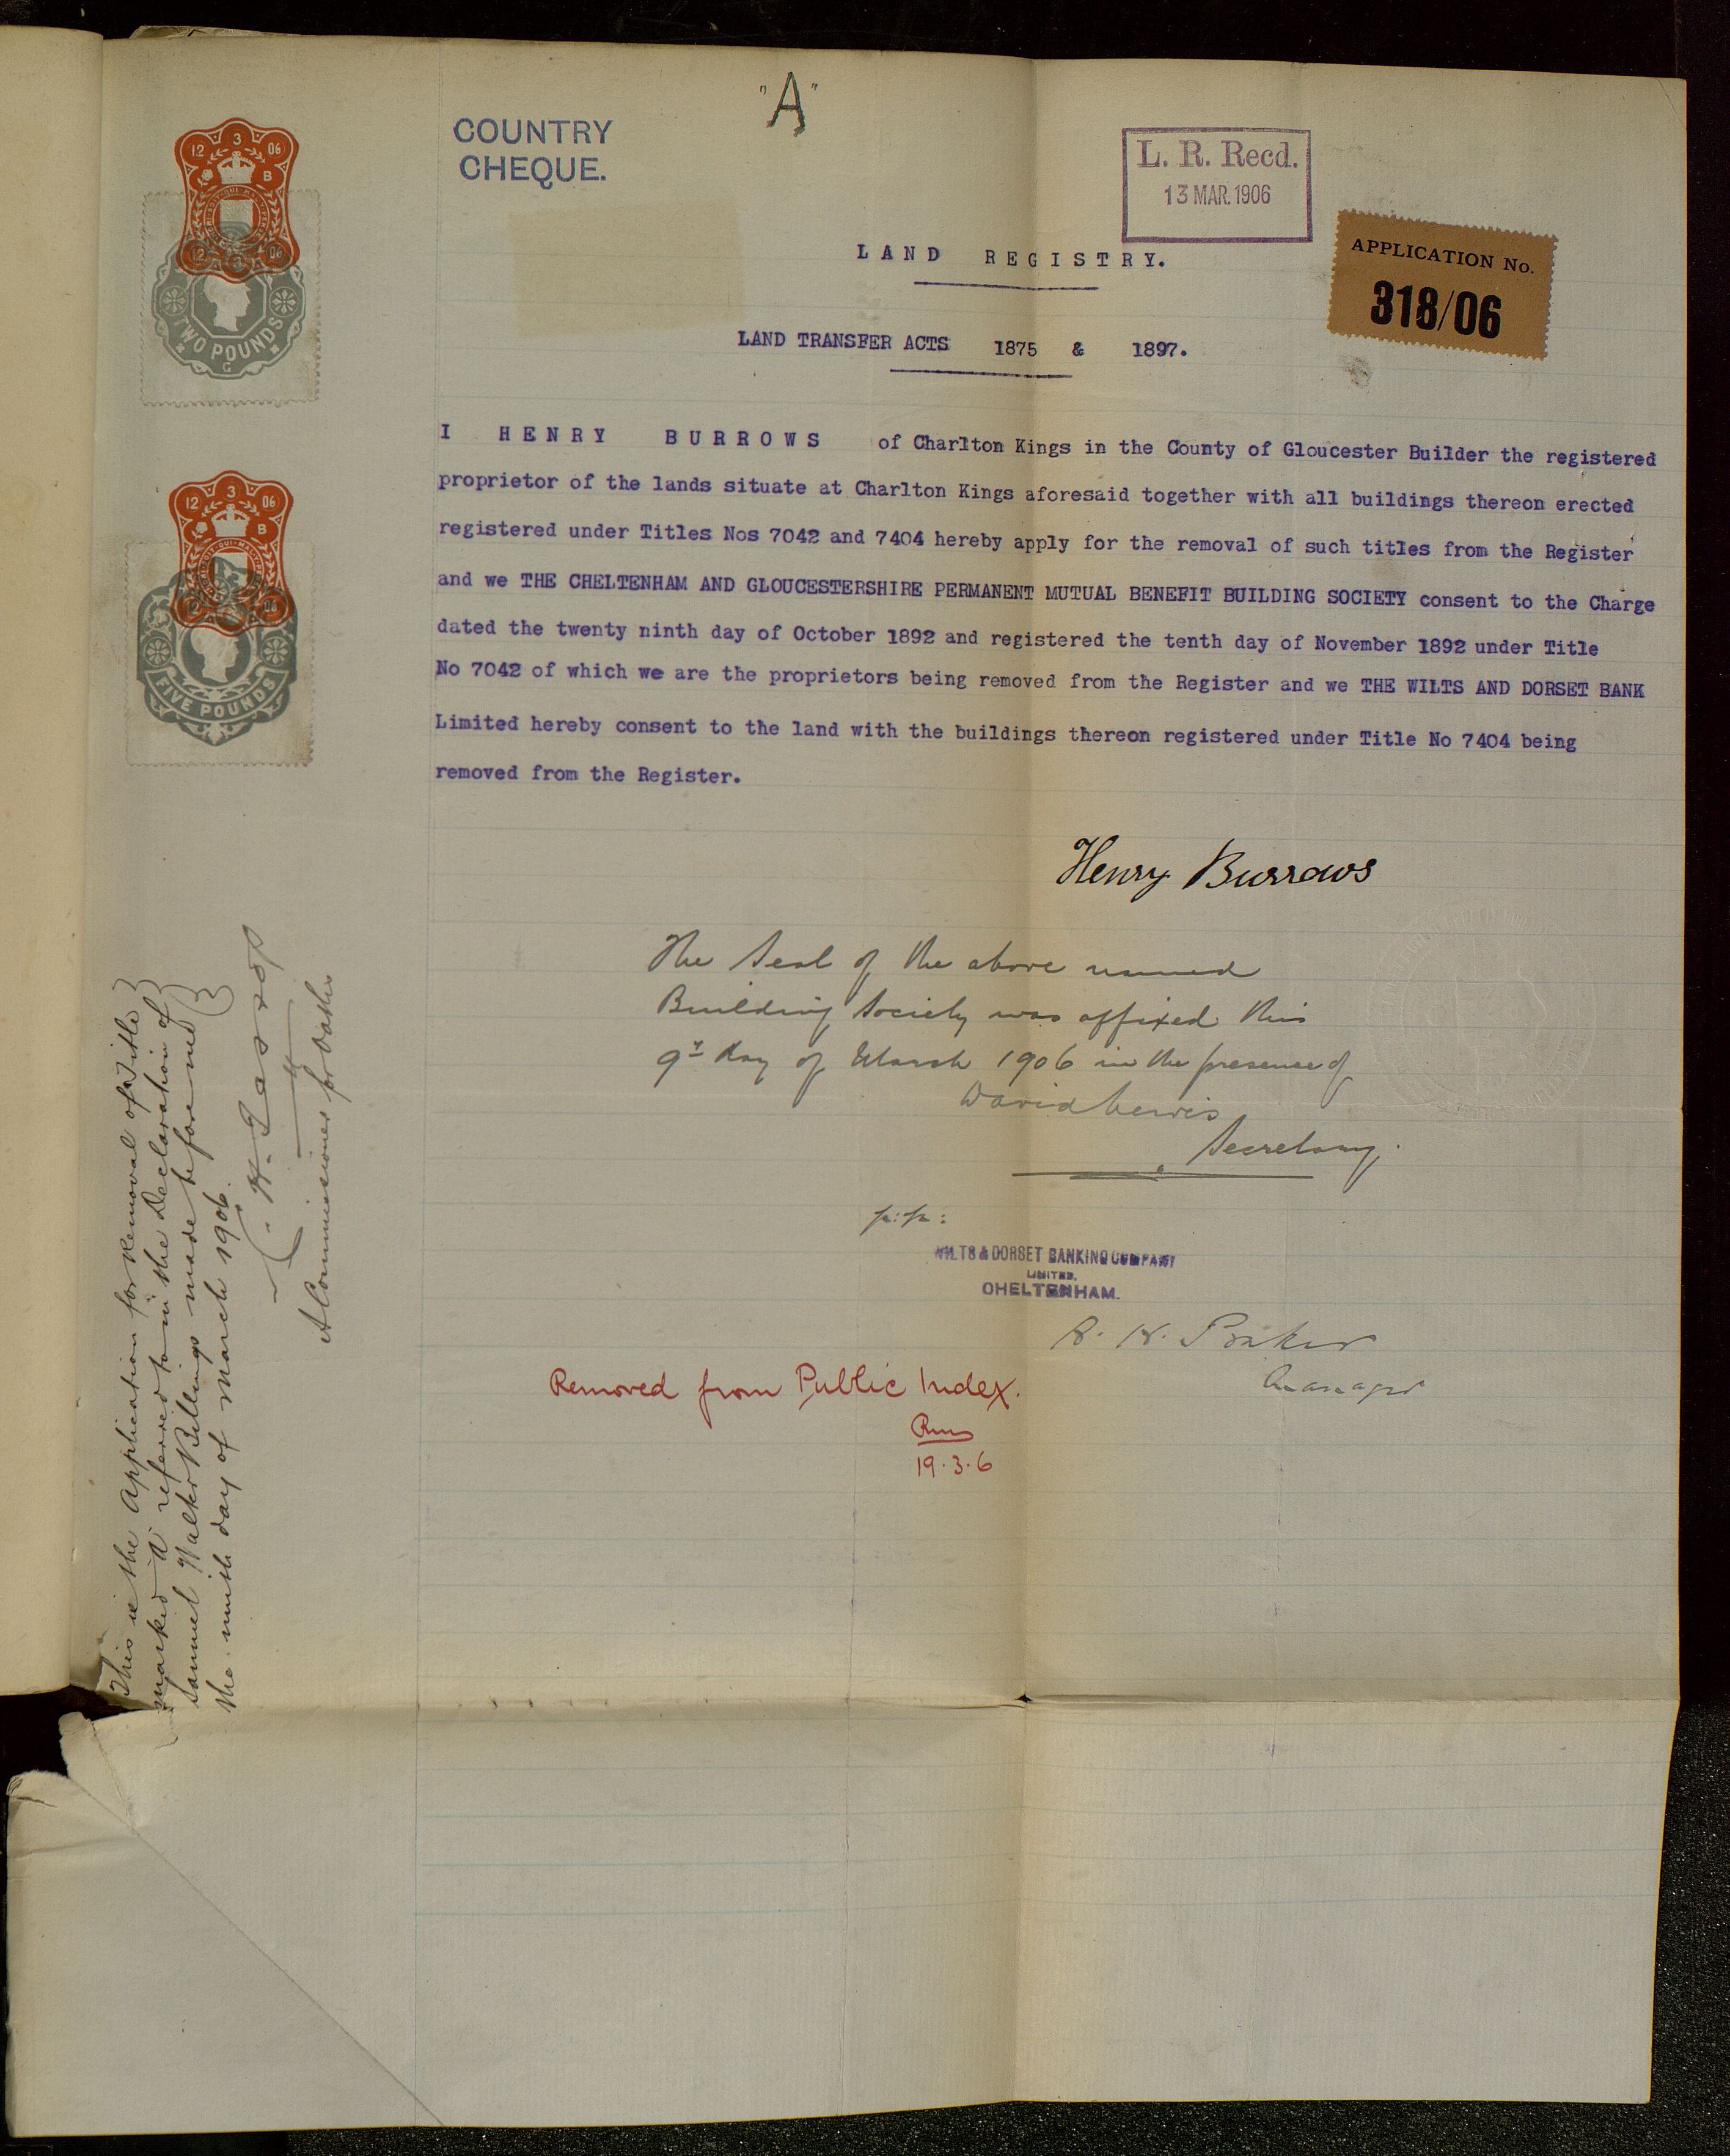 "A"
COUNTRY
CHEQUE.
L. R. Recd.
13 MAR. 1906
APPLICATION No.
318/06
LAND REGISTRY.
LAND TRANSFER ACTS 1875 & 1897.
I HENRY BURROWS of Charlton Kings in the County of Gloucester Builder the registered
proprietor of the lands situate at Charlton Kings aforesaid together with all buildings thereon erected
registered under Titles Nos 7042 and 7404 hereby apply for the removal of such titles from the Register
and we THE CHELTENHAM AND GLOUCESTERSHIRE PERMANENT MUTUAL BENEFIT BUILDING SOCIETY consent to the Charge
dated the twenty ninth day of October 1892 and registered the tenth day of November 1892 under Title
No 7042 of which we are the proprietors being removed from the Register and we THE WILTS AND DORSET BANK
Limited hereby consent to the land with the buildings thereon registered under Title No 7404 being
removed from the Register.
Henry Burrows
The Seal of the above named
Building Society was affixed this
9th day of March 1906 in the presence of
David Lewis
Secretary.
p:p:
WILTS & DORSET BANKING COMPANY
LIMITED,
CHELTENHAM.
Manager
Removed from Public Index.
19.3.6
12 3 06
B
12 3 06
TWO POUNDS
G
12 3 06
B
12 3 06
FIVE POUNDS
This is the application for Removal of Title
marked A referred to in the Declaration of
Samuel Walker Billings made before me
the ninth day of March 1906.
A Commissioner for Oaths